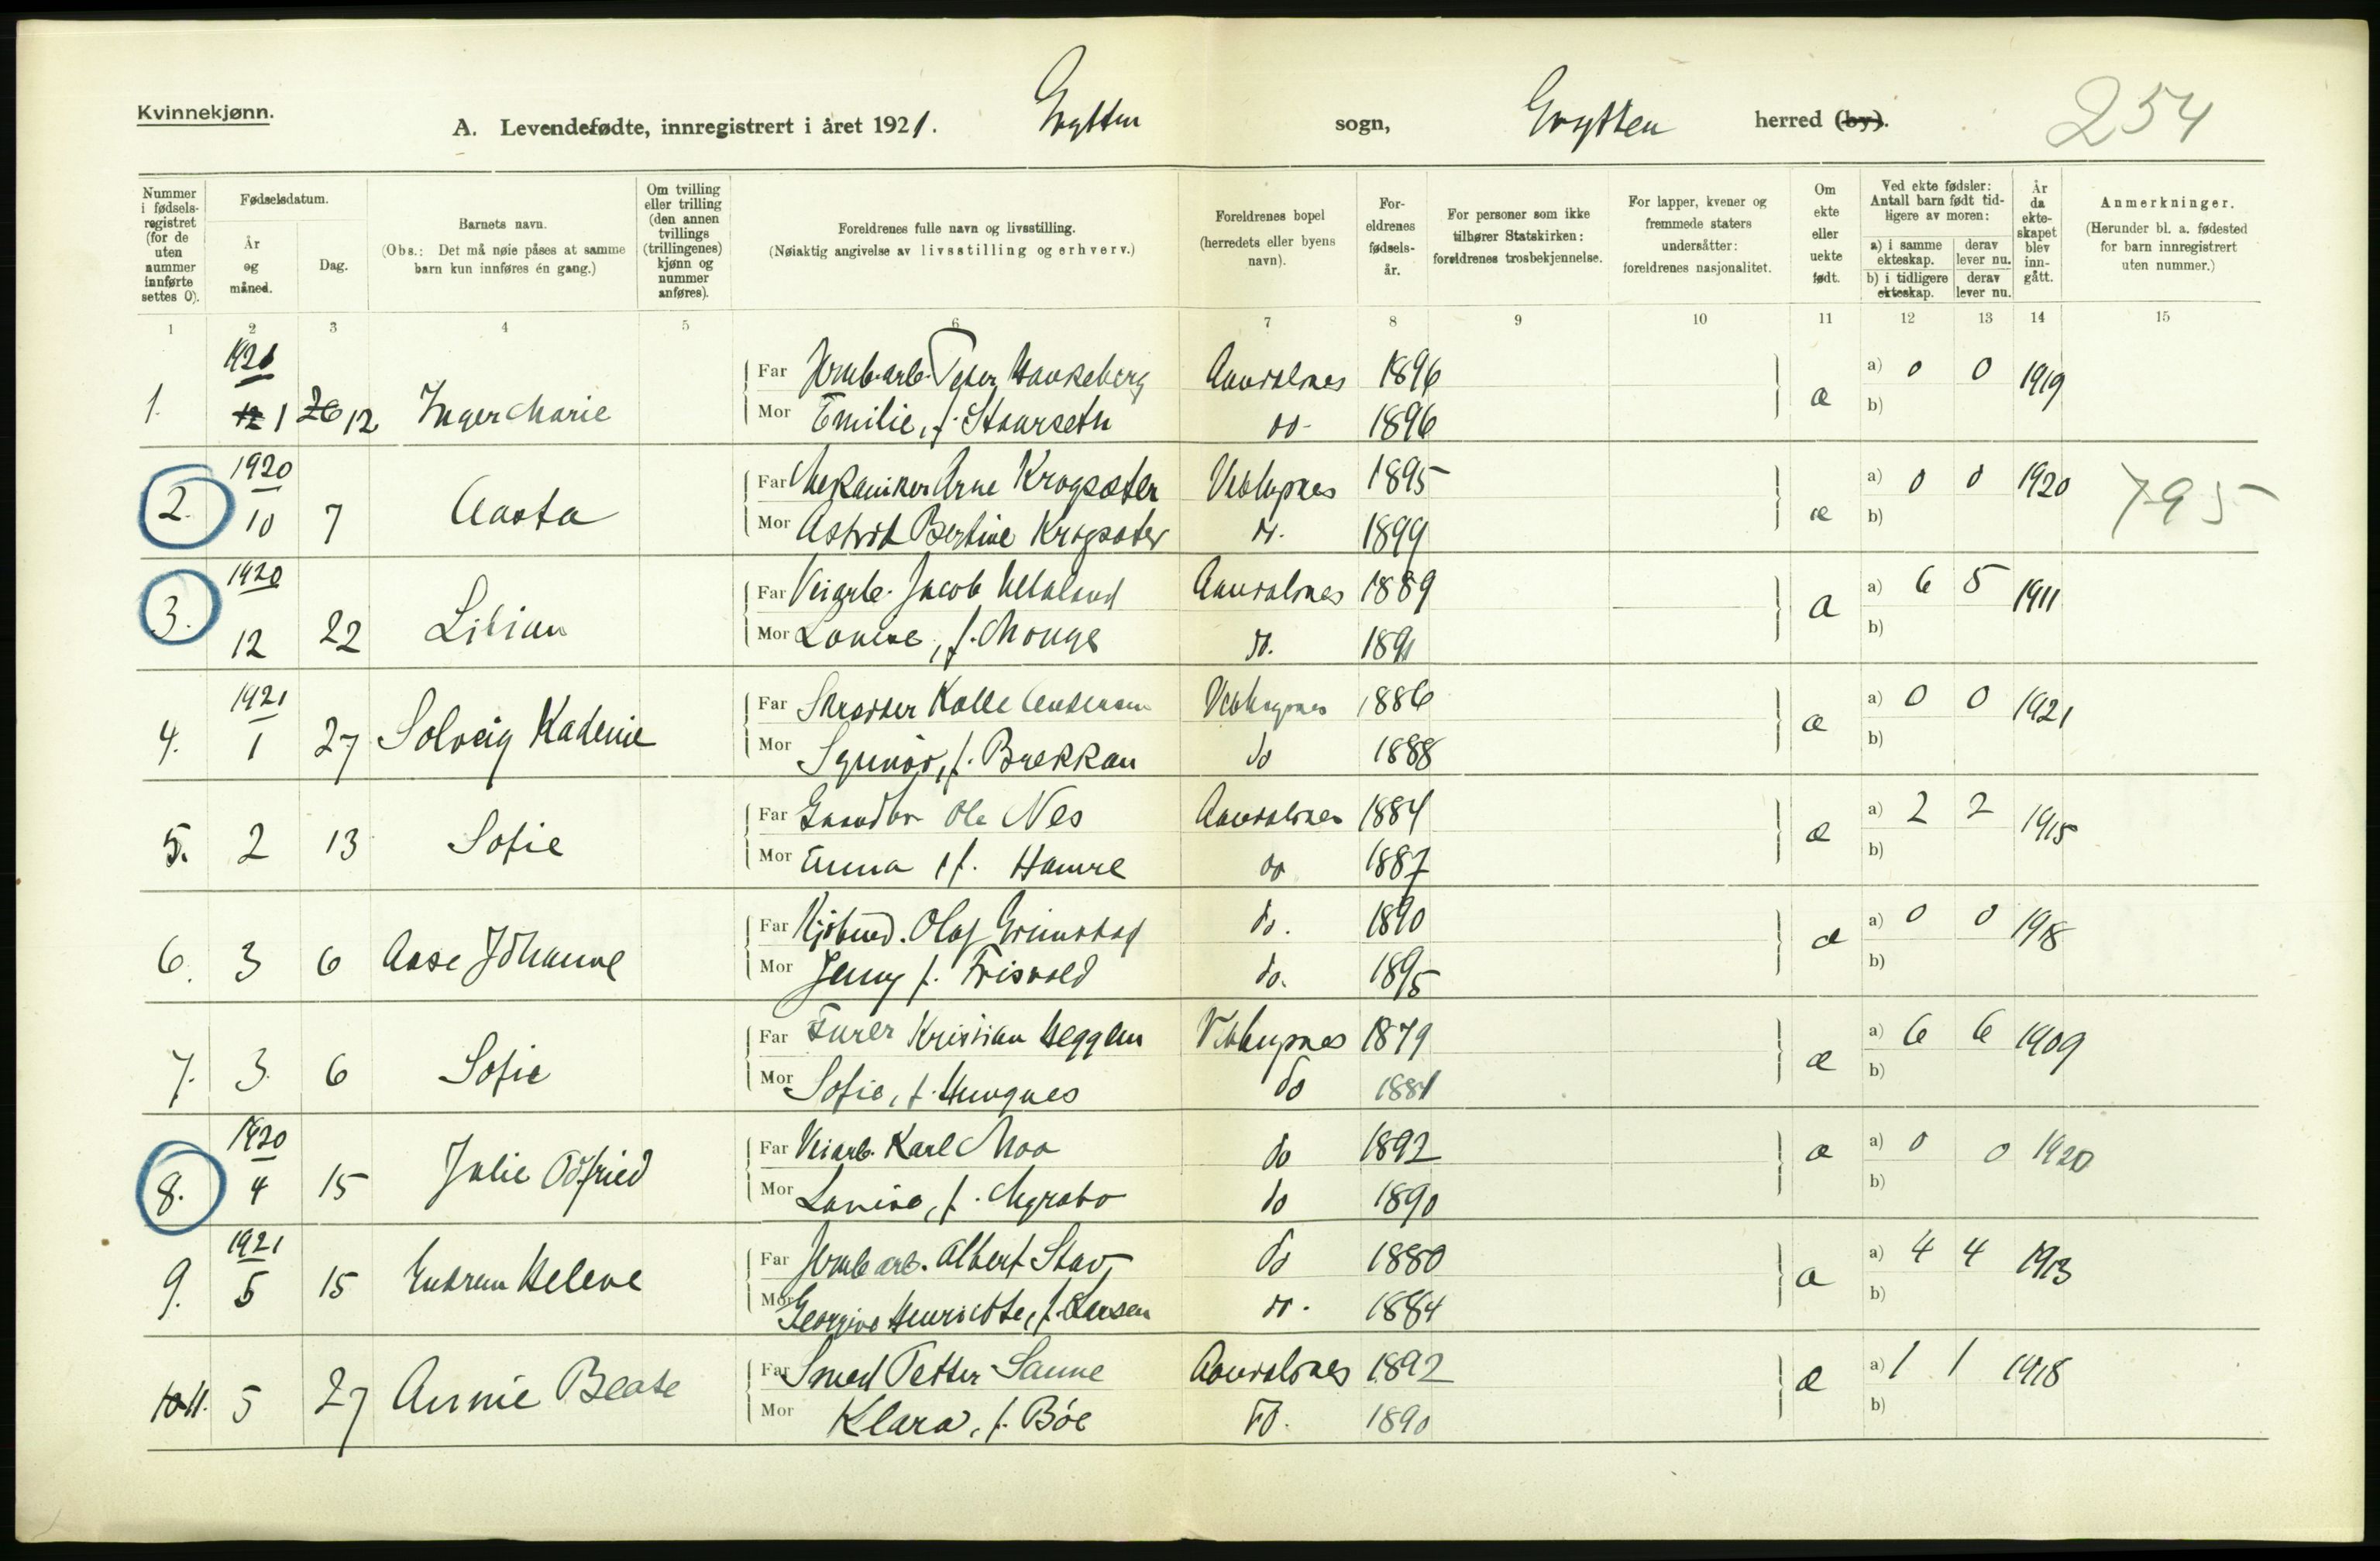 Kvinnekjønn.
A. Levendefødte, innregistrert i året 1921. Grytten sogn, Grytten herred (by). 254
Nummer i fødselsregistret (for de uten nummer innførte settes 0).
Fødselsdatum.
År og måned.
Dag.
Barnets navn.
(Obs.: Det må nøie påses at samme barn kun innføres én gang.)
Om tvilling eller trilling (den annen tvillings (trillingenes) kjønn og nummer anføres).
Foreldrenes fulle navn og livsstilling.
(Nøiaktig angivelse av livsstilling og erhverv.)
Foreldrenes bopel (herredets eller byens navn).
Foreldrenes fødselsår.
For personer som ikke tilhører Statskirken: foreldrenes trosbekjennelse.
For lapper, kvener og fremmede staters undersåtter: foreldrenes nasjonalitet.
Om ekte eller uekte født.
Ved ekte fødsler: Antall barn født tidligere av moren:
a) i samme ekteskap. derav lever nu.
b) i tidligere ekteskap. derav lever nu.
År da ekteskapet blev inngått.
Anmerkninger.
(Herunder bl. a. fødested for barn innregistrert uten nummer.)
1 2 3 4 5 6 7 8 9 10 11 12 13 14 15
1921
1. 12 1 26 12 Inger Marie Far Peter Aandalsnes 1896 æ a) 0 0 1919
Mor Emilie, f. Staurseth do 1896 b)
1920
2. 10 7 Aasta Far Mekaniker Arne Krogsæter Veblugnes 1895 æ a) 0 0 1920 795
Mor Astrid Bertine Krogsæter do. 1899 b)
1920
3. 12 22 Lilian Far Veiarb. Jacob Aandalsnes 1889 æ a) 6 5 1911
Mor f. Monge do. 1891 b)
1921
4. 1 27 Solveig Kadenie Far Kolle Andersen Veblugnes 1886 æ a) 0 0 1921
Mor f. Brekkan do 1888 b)
5. 2 13 Sofie Far Ole Nes Aandalsnes 1884 æ a) 2 2 1915
Mor Emma f. Hamre do 1887 b)
6. 3 6 Aase Johanne Far Kjøbmd. Olaf Grimstad do. 1890 æ a) 0 0 1918
Mor Jenny f. Frisvold do. 1895 b)
7. 3 6 Sofie Far Furer Kristian Heggem Veblugnes 1879 æ a) 6 6 1909
Mor Sofie, f. do 1881 b)
1920
8. 4 15 Julie Odfried Far Veiarb. Karl Moa do 1892 æ a) 0 0 1920
Mor f. do 1890 b)
1921
9. 5 15 Gudrun Helene Far Jernb. arb. Albert Stav do 1880 æ a) 4 4 1913
Mor Georgine Henriette, f. Larsen do. 1884 b)
10 11. 5 27 Annie Beate Far Smed Petter Sanne Aandalsnes 1892 æ a) 1 1 1918
Mor Klara, f. Bøe do. 1890 b)